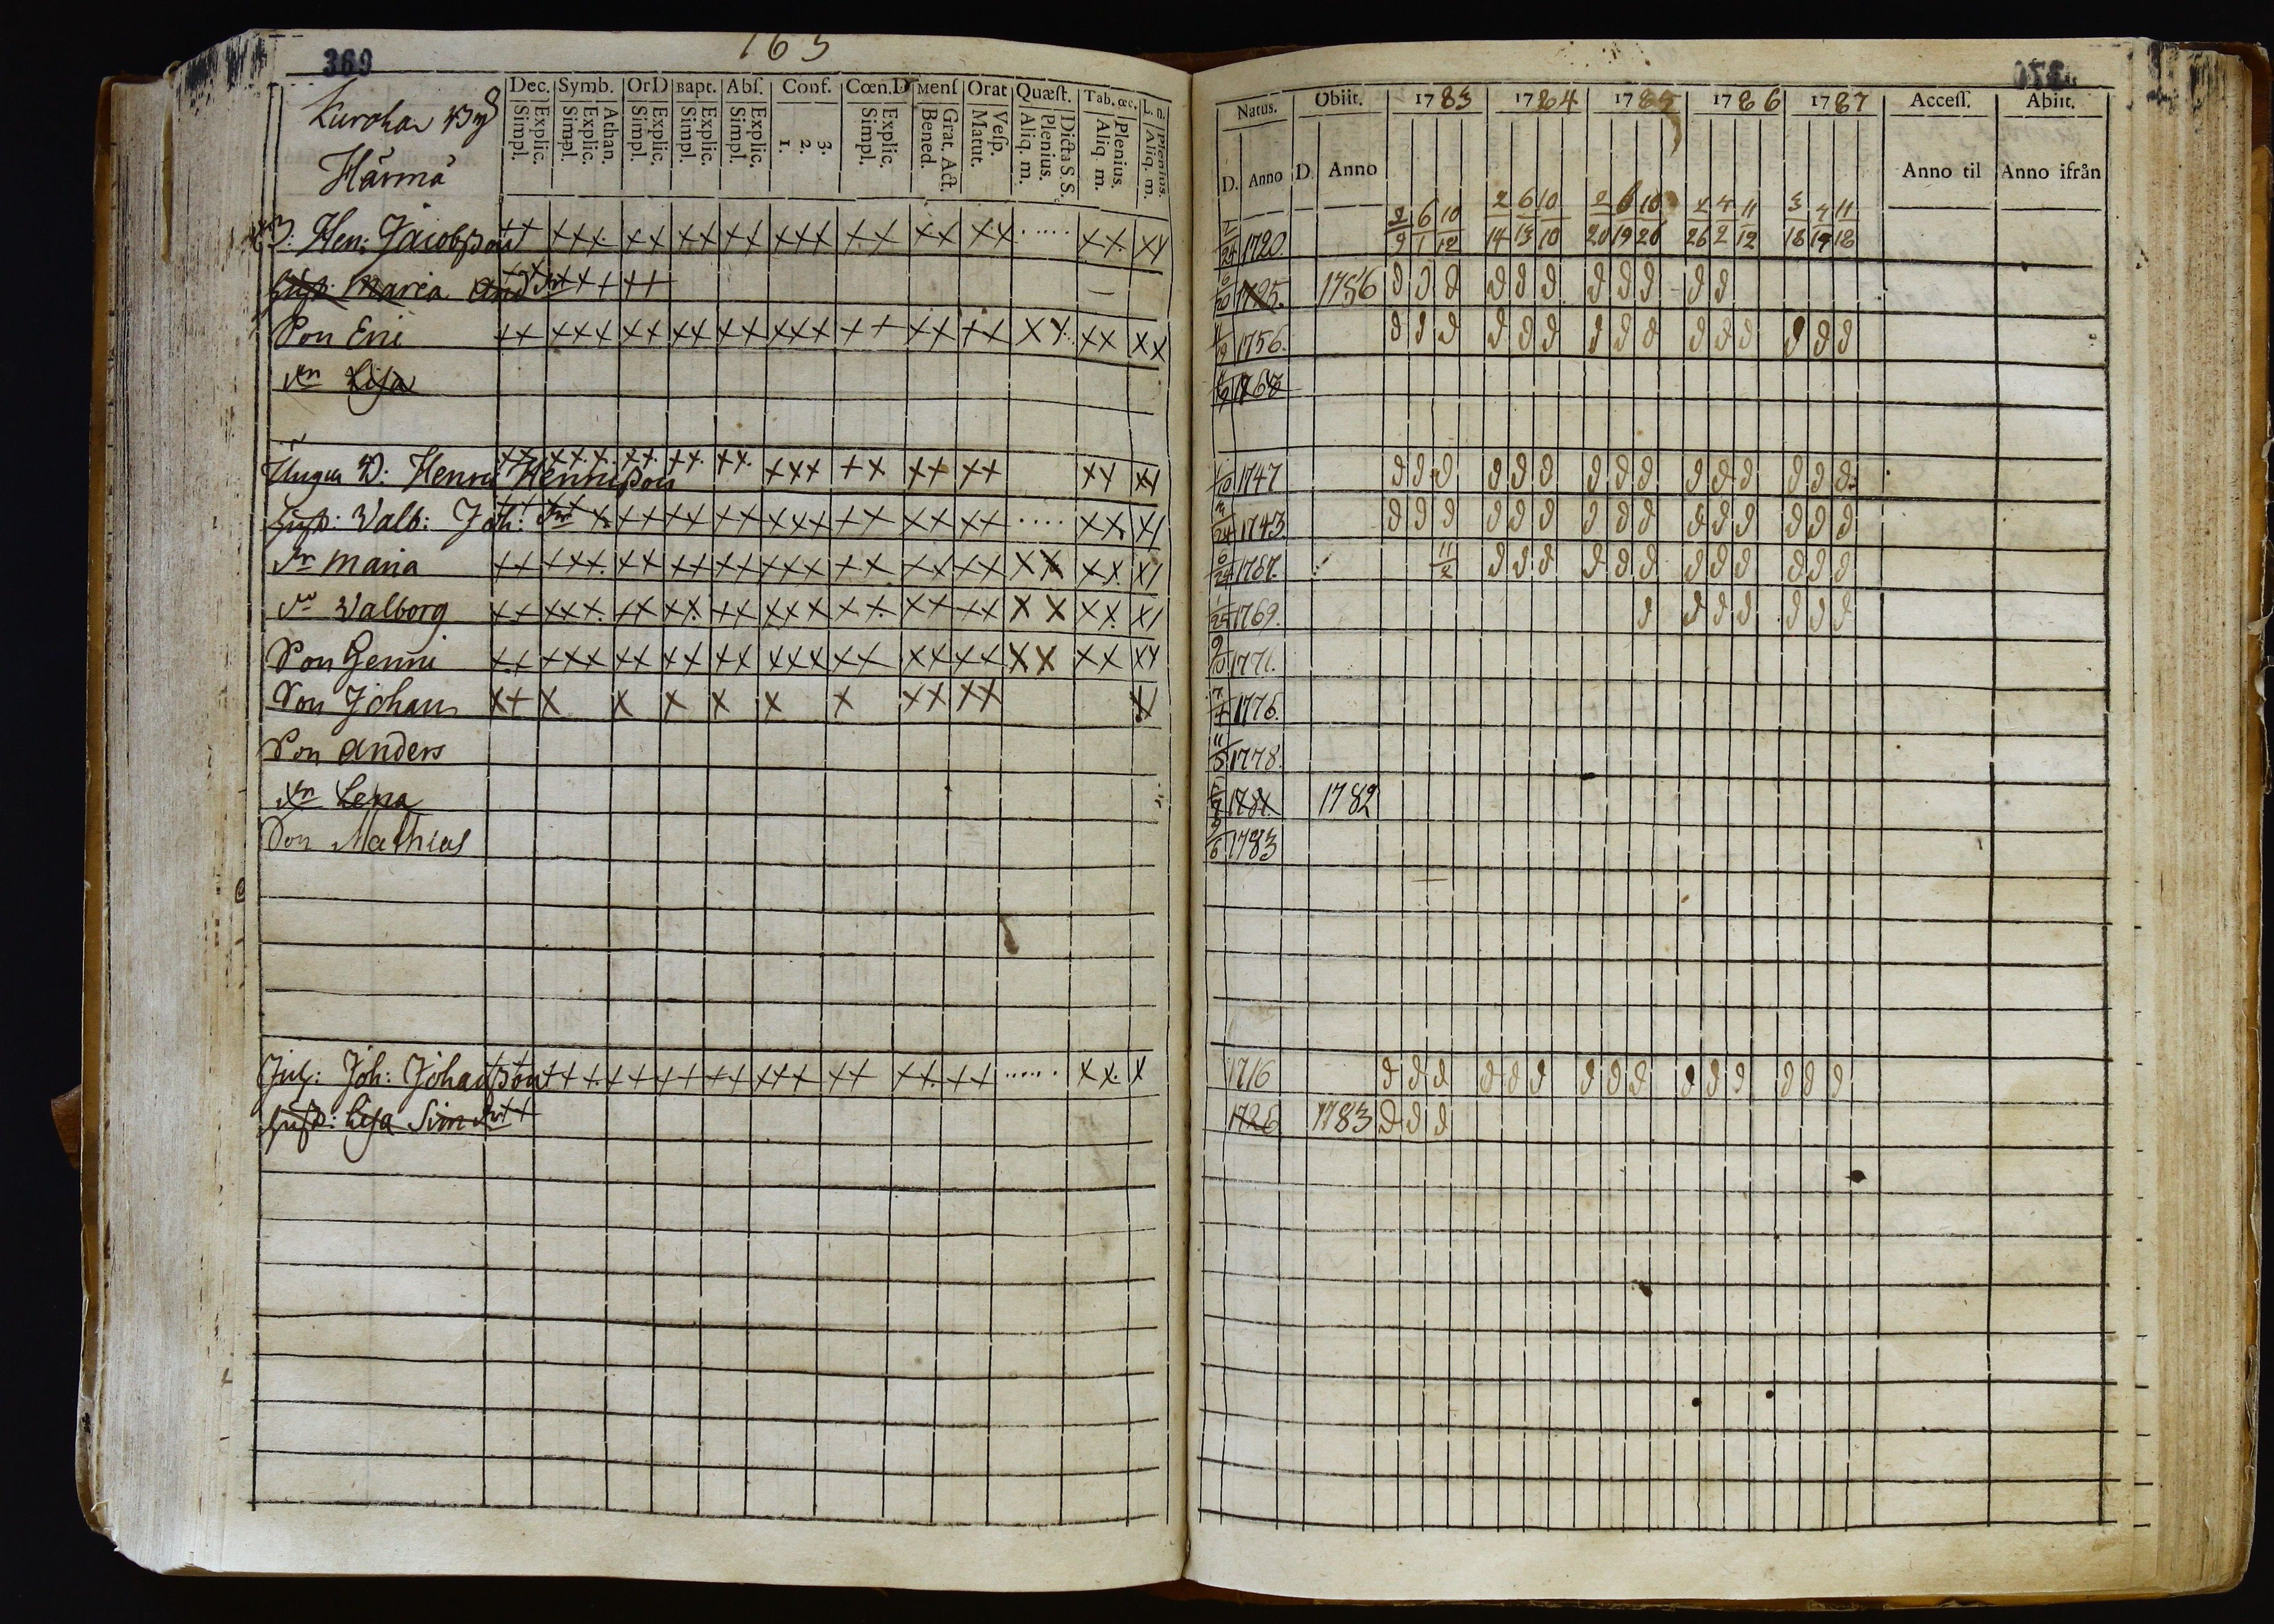 369
163
Kuroha By
Härmä
Dec. Symb. OrD Bapt. Abſ. Conf. Cœn.D Menſ Orat Quæſt. Tab. œc. L. n.
Explic. Simpl. Athan. Explic. Simpl. Explic. Simpl. Explic. Simpl. Explic. Simpl. 3. 2. 1. Explic. Simpl. Grat. Act. Bened. Veſp. Matut. Dicta S. S. Plenius. Aliq. m. Plenius. Aliq m. Plenius. Aliq. m.
B: Hen: Jacobſson ++ +++ ++ ++ ++ +++ ++ ++ ++ ..... ++ ++
Huſt: Maria And dr
Son Eric ++ +++ ++ ++ ++ +++ ++ ++ ++ ++ ++ ++
dr Lisa
Unga B: Henric Henricsson ++ +++ ++ ++ ++ +++ ++ ++ ++ ++ ++
Huſt: Valb: Joh: dr ++ ++ ++ +++ ++ ++ ++ ..... ++ ++
dr Maria ++ +++ ++ ++ ++ +++ ++ ++ ++ ++ ++ ++
dr Valborg ++ +++ ++ ++ ++ +++ ++ ++ ++ ++ ++ ++
Son Henric ++ +++ ++ ++ ++ +++ ++ ++ ++ ++ ++ ++
Son Johan ++ + + + + + + ++ ++ ++
Son Anders
dr Lena
Son Mathias
Inh: Joh: Johansson +++ ++ ++ ++ +++ ++ ++ ++ ...... ++ +
Huſt: Lisa Sim dr ++
370
Natus. Obiit. 1783 1784 1785 1786 1787 Acceſſ. Abiit.
D. Anno D. Anno Anno til Anno ifrån
2/9 6/1 10/12 2/14 6/13 10/10 2/20 6/19 10/20 2/26 4/2 11/12 3/18 4/19 11/18
1720.
1725. 1786 d d d d d d d d d d d
11/19 1756. d d d d d d d d d d d d d d d
1768
1747 d d d d d d d d d d d d d d d
1743. d d d d d d d d d d d d d d d
6/24 1767. 11/2 d d d d d d d d d d d d
1769. d d d d d d d
9/10 1771.
1776.
11/5 1778.
1781. 1782
9/6 1783
1716 d d d d d d d d d d d d d d d
1726 1783 d d d